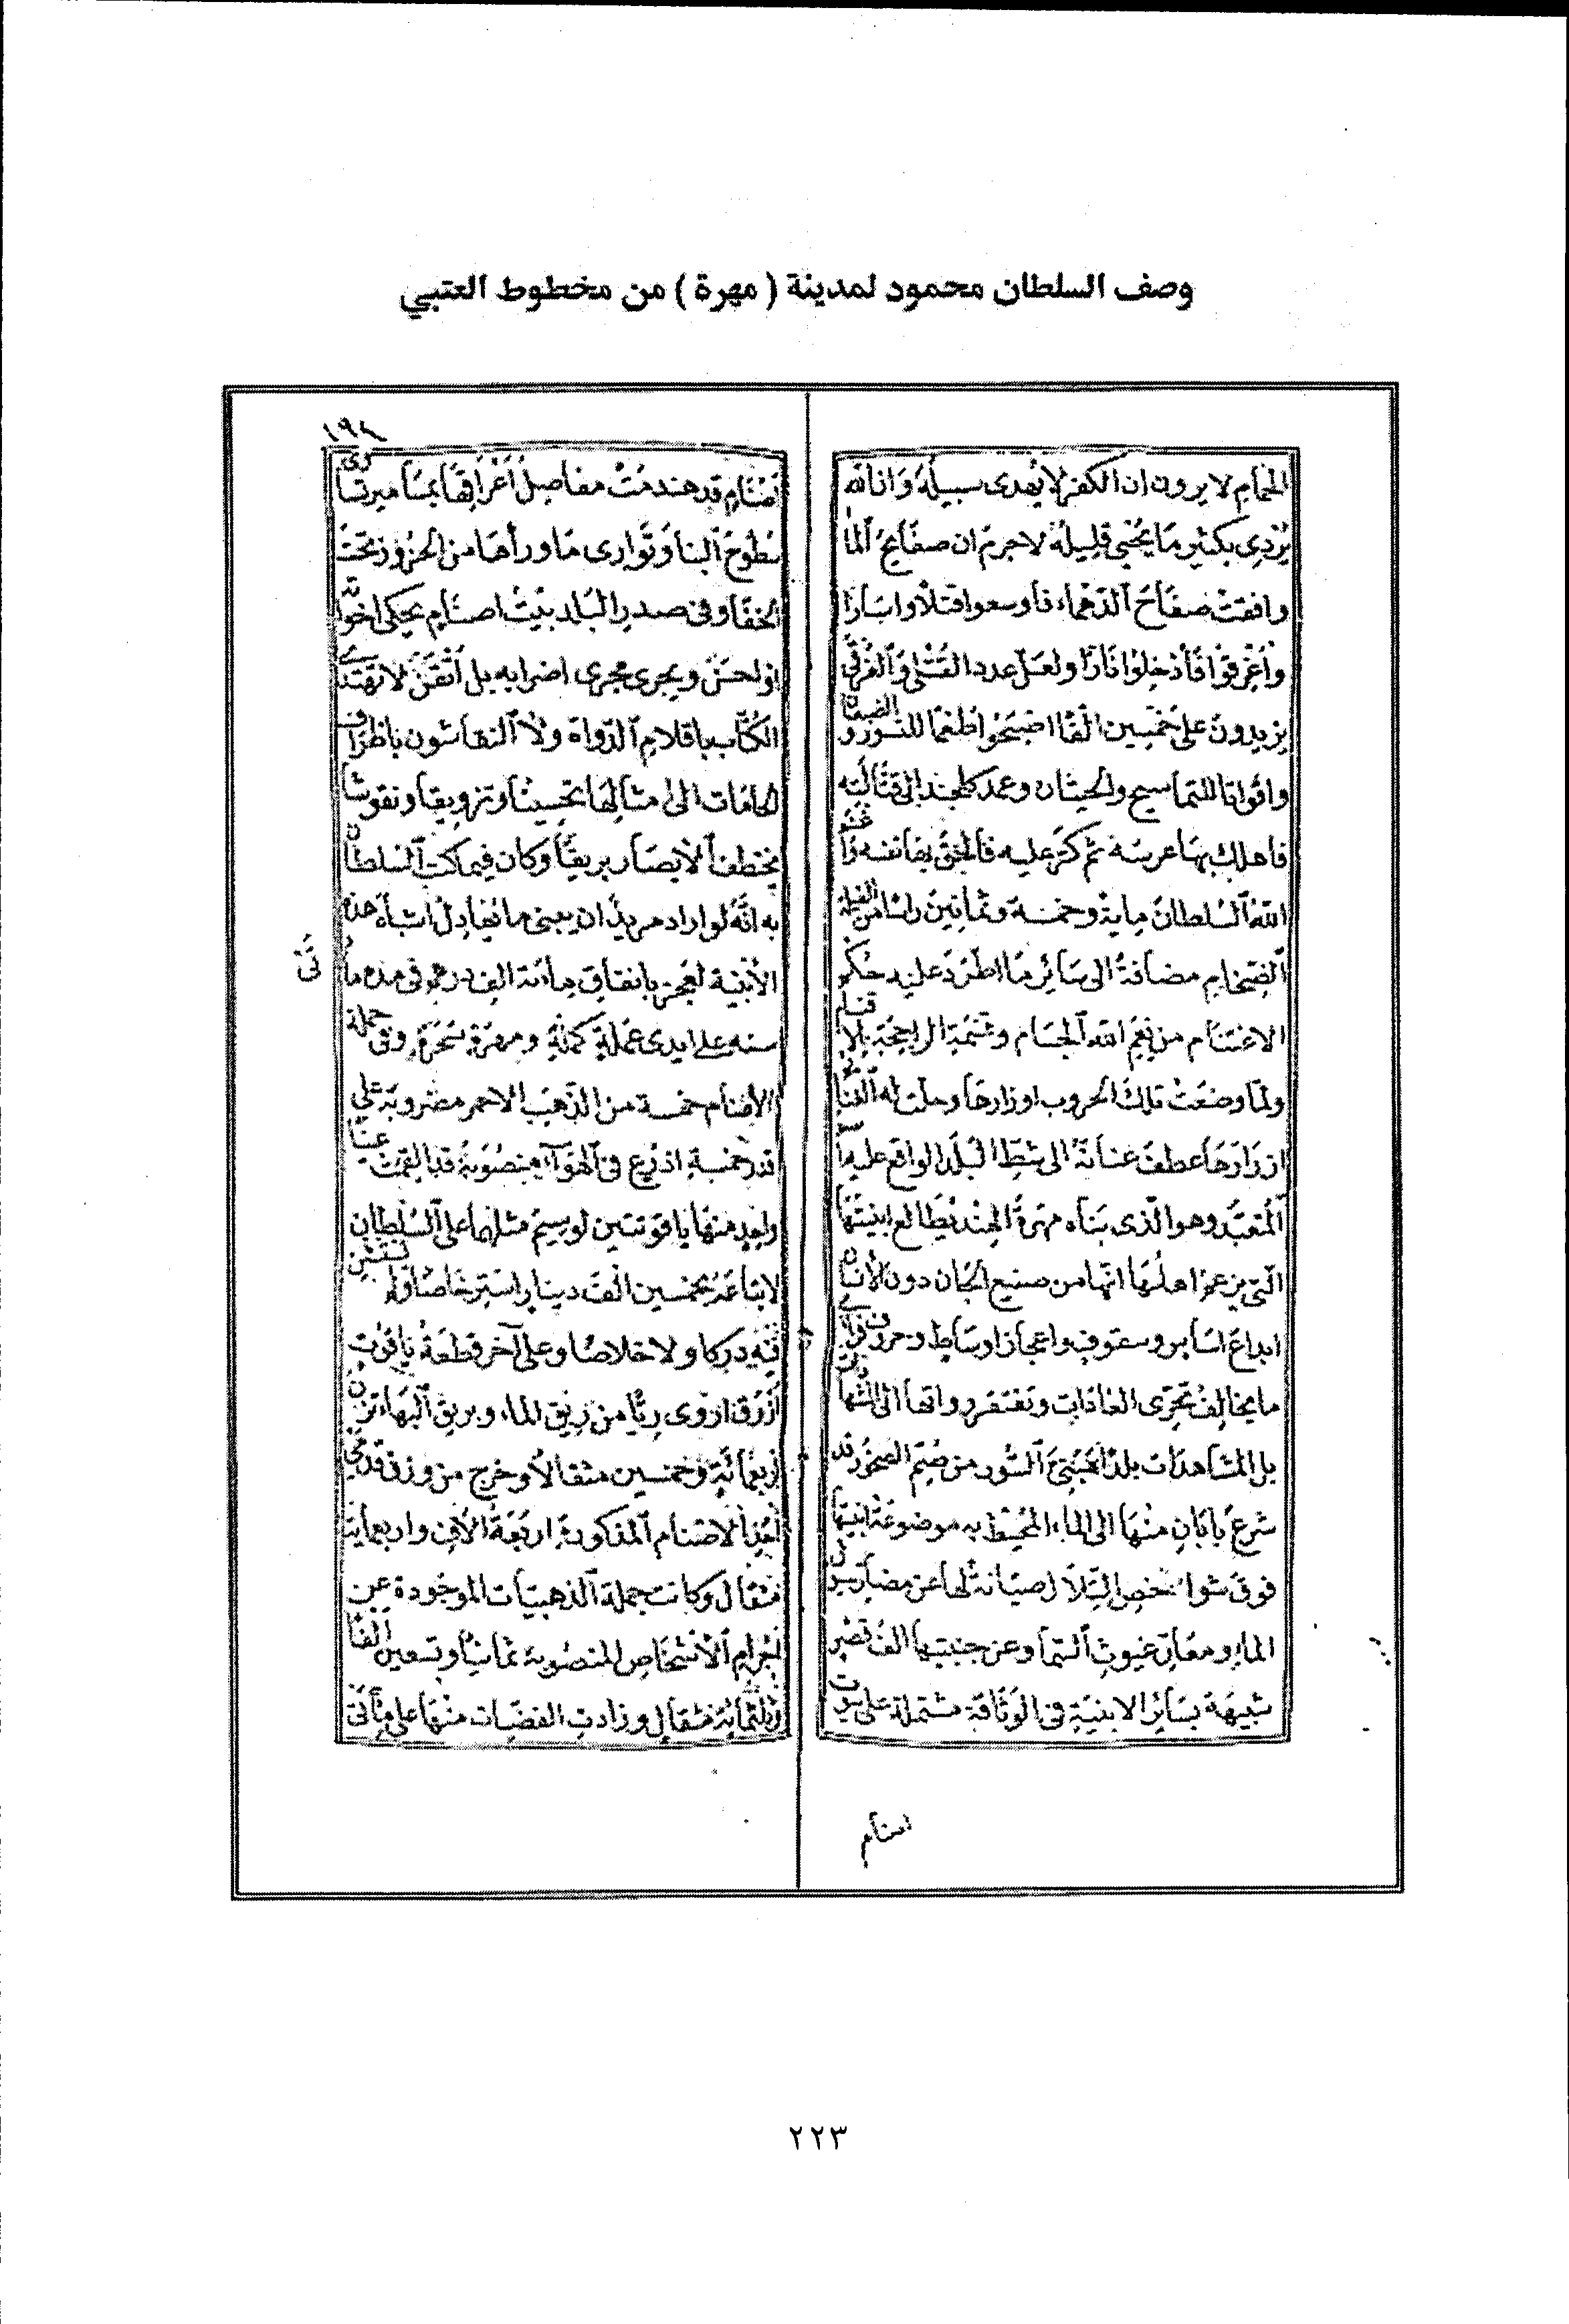 وصف السلطان محمود لمدينة ( مهرة ) من مخطوط العتبي
الحمام لا يرون ان الكفر لا يهدى سبيله وان الله
يردى بكثير ما يحيى قليله لا جرم ان صفايح الما
وافقت صفاح الدهماء فاوسعوا قتلا واسارا
واغرقوا فأدخلوا نارا ولعل عدد القتلى والغرقى
يزيدون على خمسين الفا اضبحوا طعما للنسور و
واقواتا للتماسيح والحيتان وعمد كلجند الى قتالته
فاهلك بها عرسه ثم كر عليه فالحق بها نفسه
الله السلطان ماية وخمسة وثمانين راسا من الفيلة
الضخام مضافة الى سائر ما اطرد عليه حكم
الاغتنام من نعم الله الجسام وقسمه الراجحة بلا
ولما وضعت تلك الحروب اوزارها وحلت له
ازرارها عطف عنانه الى شط البلد الواقع عليه
المتعبد وهو الذى بناه مهرة الهند يطالع ابنيتها
التى يزعم اهلها انها من صنيع الجان دون الانسان
ابداع اساس وسقوف واعجاز اوساط وحروف
ما يخالف مجرى العادات وتفتقر رواتها الى الشهادات
بل المشاهدات بلدا مبتنى السور من صم الصخور قد
شرع بابان منها الى الماء المحيط به موضوعة ابنيتها
فوق شواخص التلال صيانة لها عن مضار
الماء ومعار غيوث السما وعن جنبتيها الف قصر
شبيهة بسائر الابنية فى الوثاقة مشتملة على بيوت
اصنام
١٩٨
اصنام قد هندمت مفاصل اغراقها بمسامير
سطوح البنا وتوارى ما وراءها من الحزوز تحت
الخفا وفى صدر البلد بيت اصنام يحكى اخواته
او احسن ويجرى مجرى اضرابه بل اتقن لا تهتدى
الكتاب باقلام الدواة ولا النقاشون باطراف
الخامات الى امثالها تحسينا وتزويقا ونقوشا
يختطف الابصار بريقا وكان فيما كتب السلطان
به انه لو اراد مريد ان يبنى ما يعادل اشباه هذه
الأبنية لعجز بانفاق مائة الف درهم فى مدة مأتى
سنه على ايدى عملة كملة ومهرة سحرة وفى جملة
الأصنام خمسة من الذهب الاحمر مضروبة على
قدر خمسة اذرع فى الهواء منصوبة قد القمت عينا
واحد منها ياقوتتين لو سيم مثلهما على السلطان
لابتاعه بخمسين الف دينار استرخاصا ولم يستثن
فيه دركا ولا خلاصا وعلى آخر قطعة ياقوت
أزرق اروى ريا من ريق الماء وبريق البهاء تزن
اربعمائة وخمسين مثقالا وخرج من وزن قدمى
أحد الاصنام المذكورة اربعة الاف واربعماية
مثقال وكانت جملة الذهبيات الموجودة عن
اجرام الأشخاص المنصوبة ثمانيا وتسعين الفا
وثلثمائة مثقال وزادت الفضيات منها على مأتى
٢٢٣